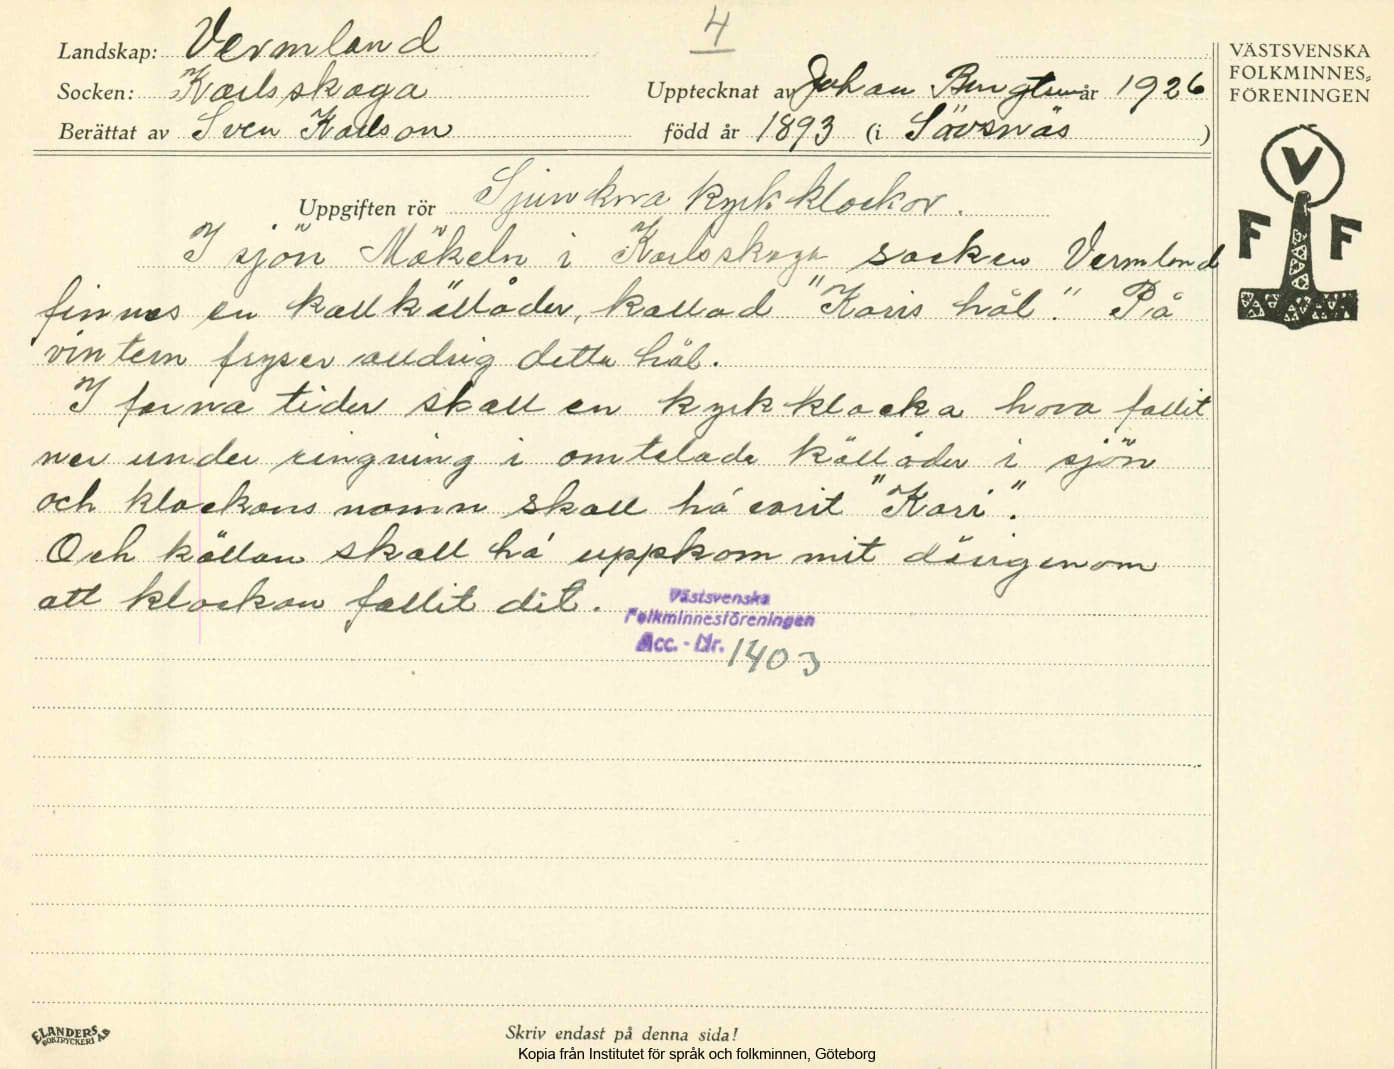 4
Landskap: Vermland
Socken: Karlsskoga
Upptecknat av Johan Bengtson år 1926
Berättat av Sven Karlson
född år 1893 (i Sävsnäs)
VÄSTSVENSKA
FOLKMINNES-
FÖRENINGEN
V
F F
Uppgiften rör Sjunkna kyrkklockor.
I sjön Möckeln i Karlsskoga socken Vermland
finnes en kallkällåder, kallad "Karis hål". På
vintern fryser alldrig detta hål.
I forna tider skall en kyrkklocka hava fallit
ner under ringning i omtalade källåder i sjön
och klockans namn skall ha varit "Kari".
Och källan skall ha uppkommit därigenom
att klockan fallit dit.
Västsvenska
Folkminnesföreningen
Acc. - Nr. 1403
ELANDERS
BOKTRYCKERI AB
Skriv endast på denna sida!
Kopia från Institutet för språk och folkminnen, Göteborg